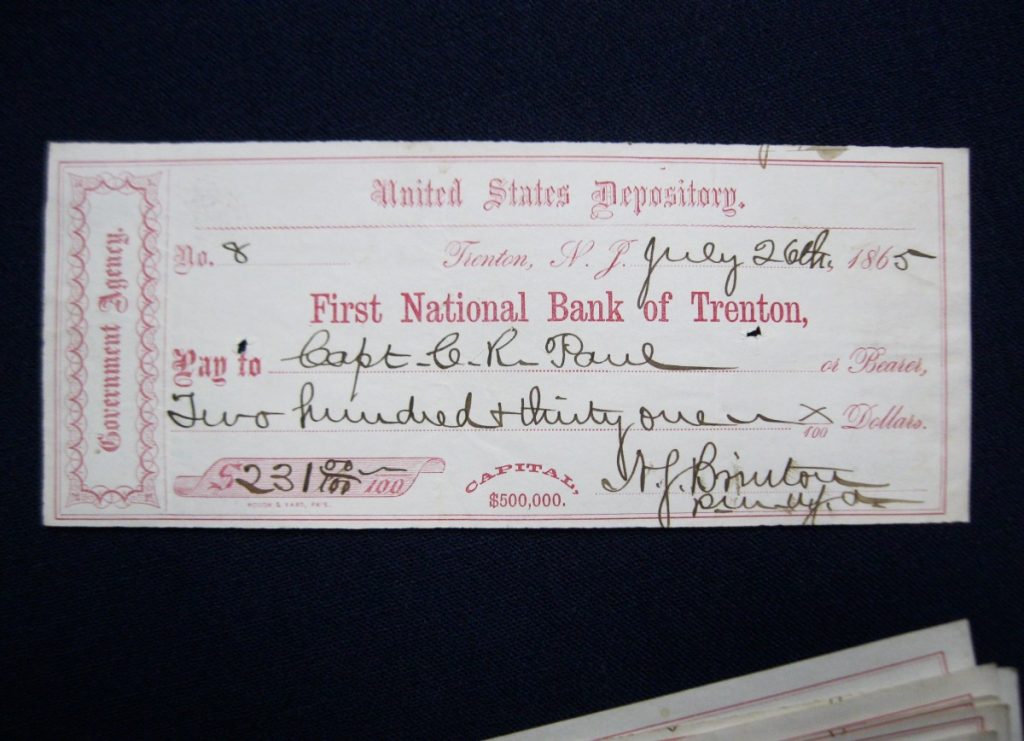 United States Depository.
No. 8 Trenton, N. J. July 26th, 1865
First National Bank of Trenton,
Pay to Capt. C. R. Paul or Bearer,
Two hundred & thirty one X/100 Dollars.
$231 00/100 /100
CAPITAL,
$500,000.
N. J. Brinton
Government Agency.